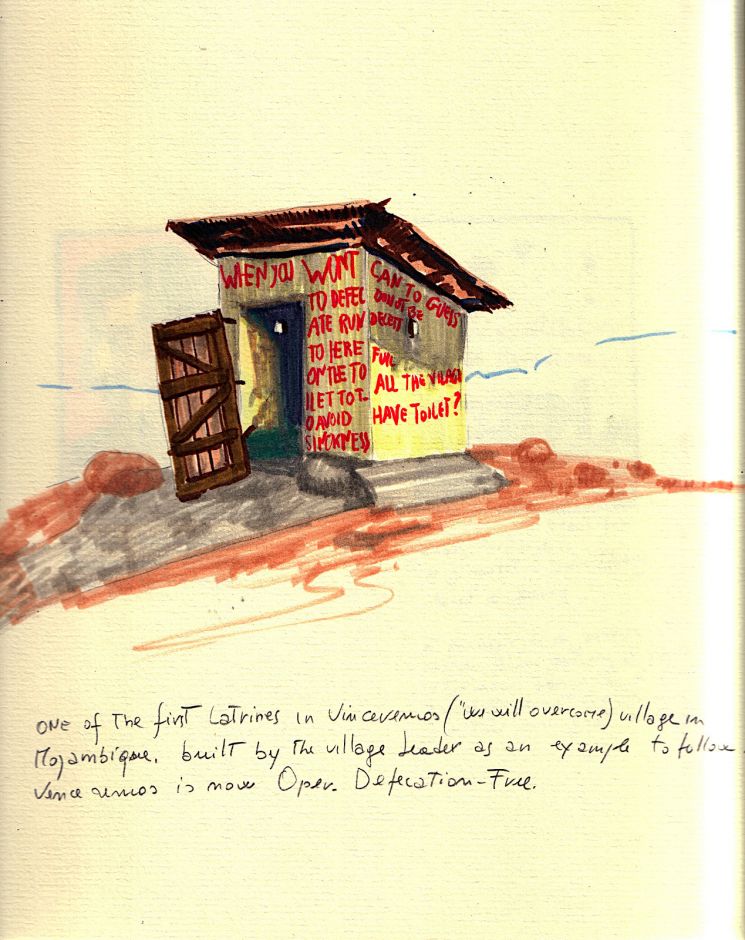 WHEN YOU WONT
TO DEFEC
ATE RUN
TO HERE
ON THE TO
ILET TO T-
O AVOID
SICKNESS
CAN TO GUESS
DON'T BE
DECEIT
FUL
ALL THE VILAGE
HAVE TOILET?
ONE of The first Latrines in Vinceremos ("we will overcome) village in
Mozambique, built by the village leader as an example to follow.
Venceremos is now Open Defecation-Free.